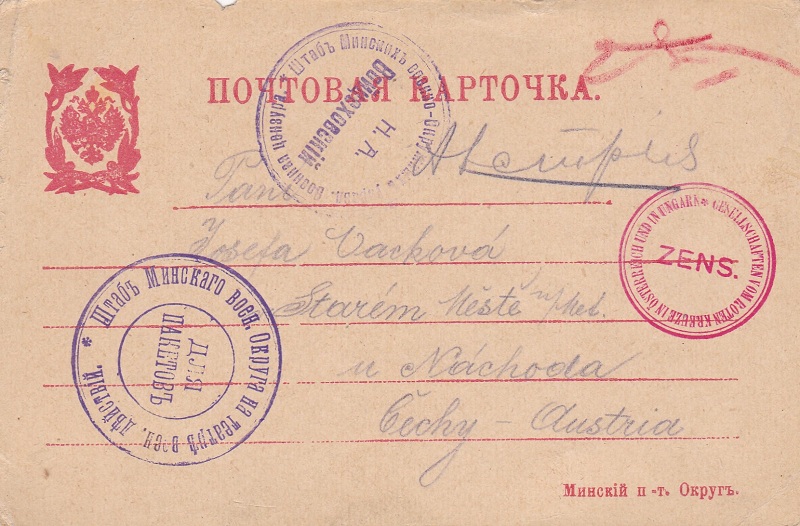 ПОЧТОВАЯ КАРТОЧКА.
Штабъ Минскихъ военная цензура.
Н. А.
Австрія
Paní
Josefa Vacková
Starém Městě n/Met.
u Náchoda
Čechy - Austria
* GESELLSCHAFTEN VOM ROTEN KREUZE IN ÖSTERREICH UND IN UNGARN
ZENS.
* Штабъ Минскаго воен. Округа на театрѣ воен. дѣйствій.
ДЛЯ
ПАКЕТОВЪ
Минскій п -т. Округъ.